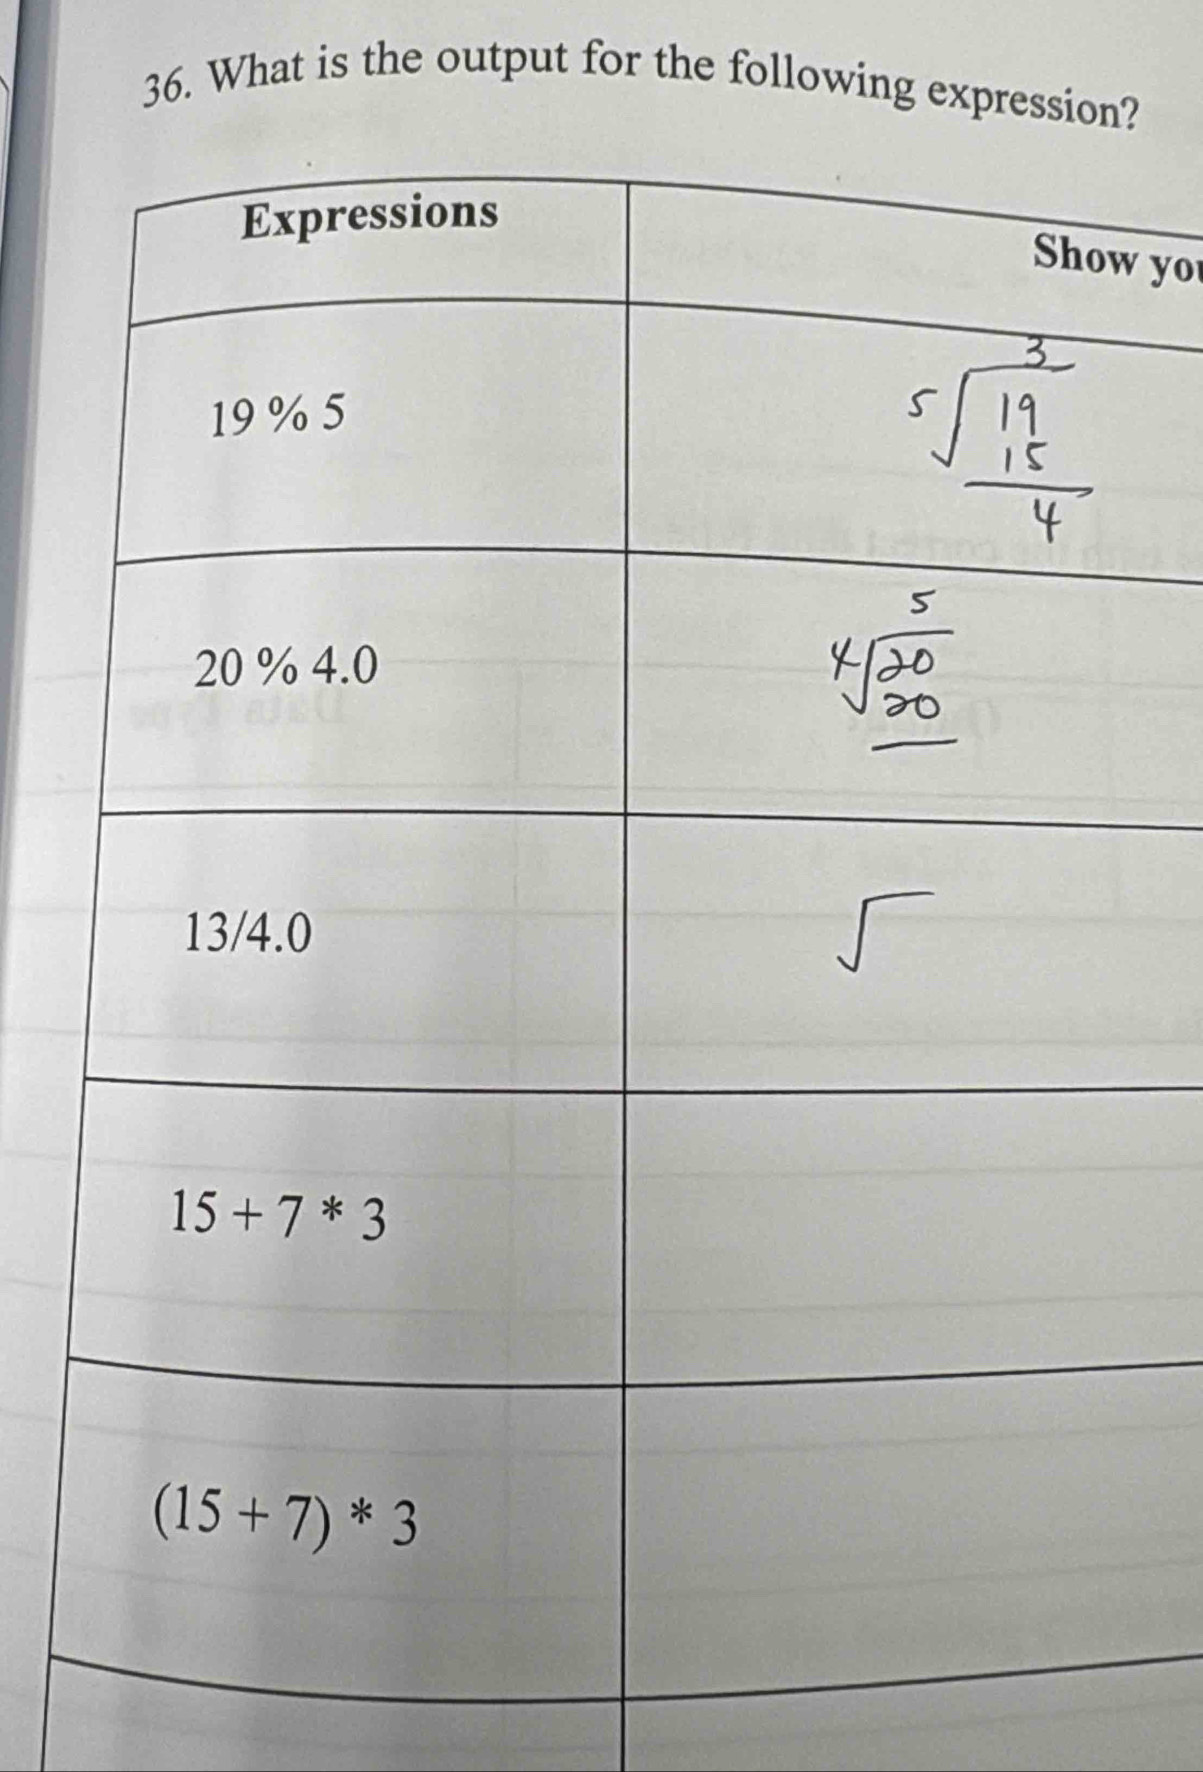 36. What is the output for the following expression?
Expressions
Show you
19 % 5
3
5 19
15
4
20 % 4.0
5
4 20
20
13/4.0
15 + 7 * 3
(15 + 7) * 3